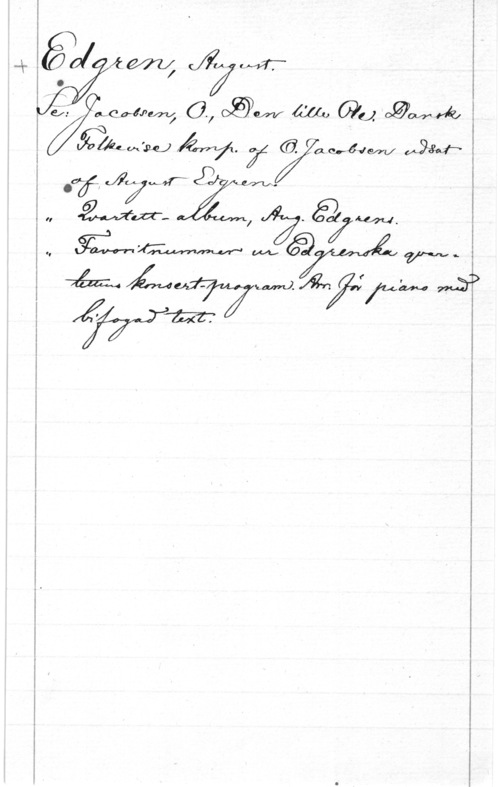 + Edgren, August.
Se: Jacobsen, O., Den lille Ole. Dansk
Folkevise komp. af O. Jacobsen udsat
af August Edgren.
" Qvartett-album, Aug. Edgrens.
" Favoritnummer ur Edgrenska qvar-
tettens konsert-program. Arr. för piano med
bifogad text.